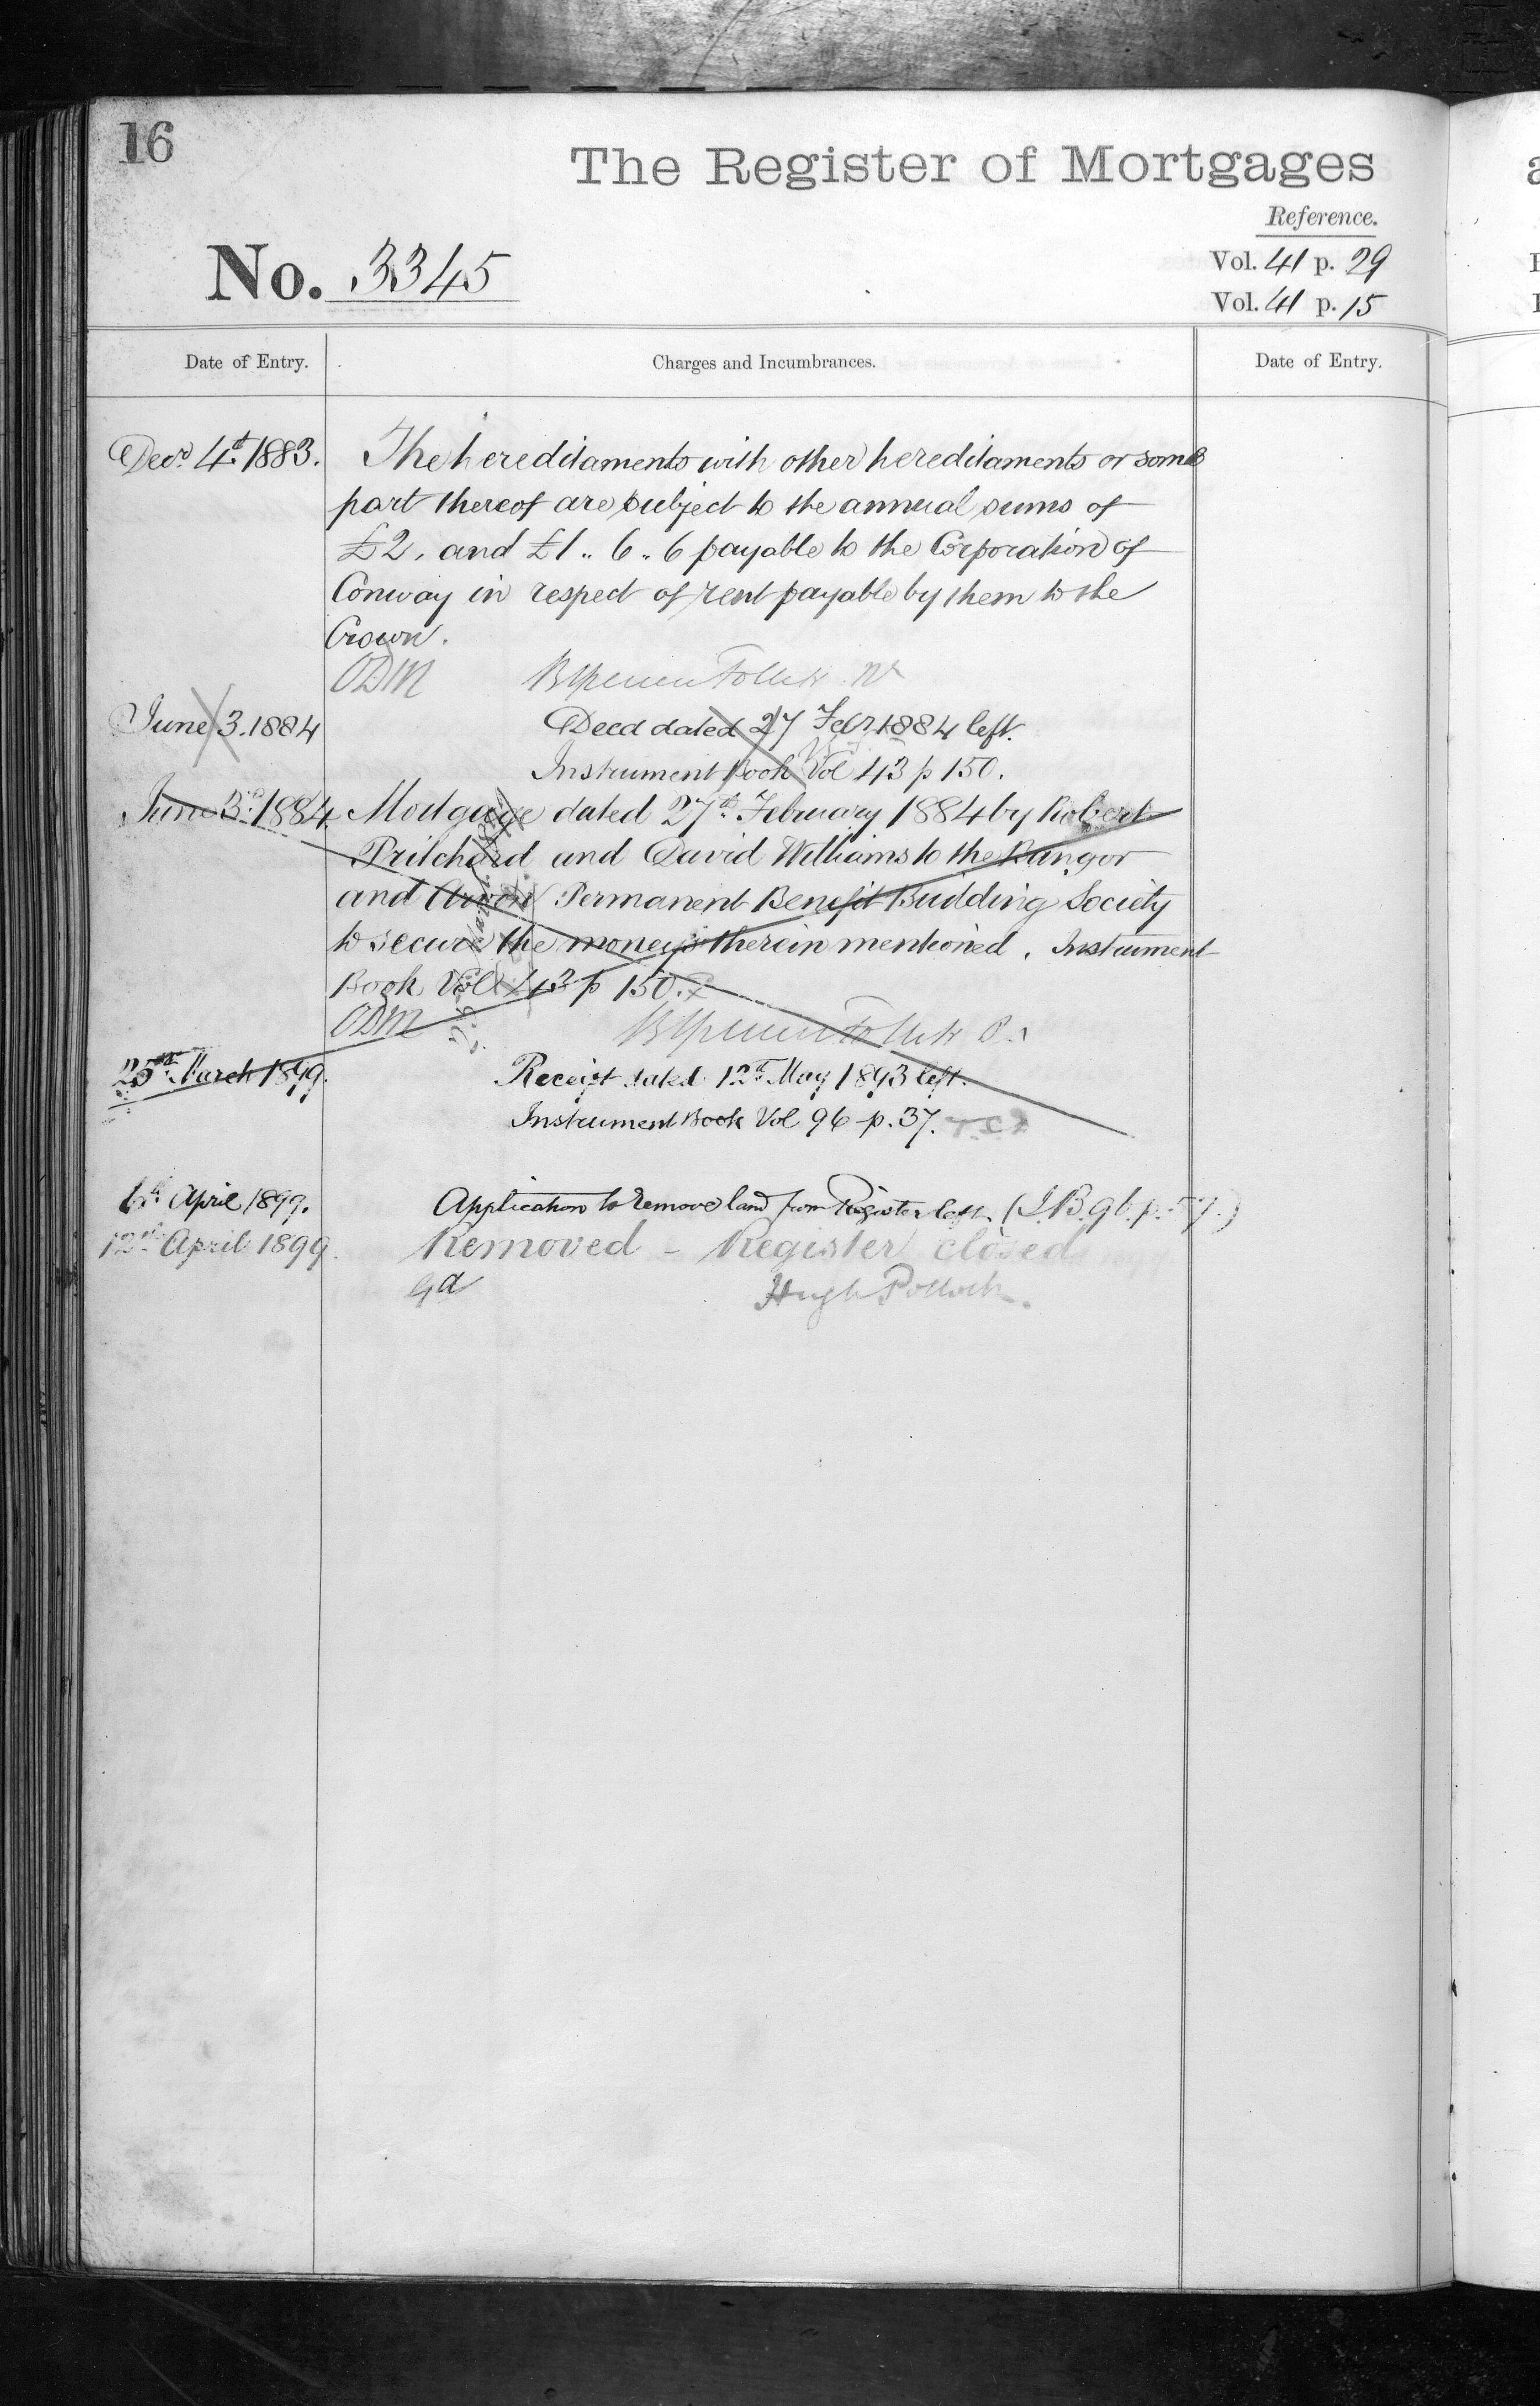 16
The Register of Mortgages
Reference.
No. 3345
Vol. 41 p. 29
Vol. 41 p. 15
Date of Entry.
Charges and Incumbrances.
Date of Entry.
Decr. 4th 1883.
The hereditaments with other hereditaments or some
part thereof are subject to the annual sums of
£2, and £1..6..6 payable to the Corporation of
Conway in respect of rent payable by them to the
Crown.
ODM
June 3. 1884
Deed dated 27 Feby 1884 left.
Instrument Book Vol 43 p 150.
June 3d. 1884
Mortgage dated 27th. February 1884 by Robert
Pritchard and David Williams to the Bangor
and Arvon Permanent Benefit Building Society
to secure the moneys therein mentioned. Instrument
Book Vol 43 p 150.
ODM
25th. March 1899.
Receipt dated 12th May 1893 left.
Instrument Book Vol 96 p. 37.
6th. April 1899.
Application to remove land from Register left. (I.B. 96. p. 57.)
12th April 1899.
Removed - Register closed
Hugh Pollock.